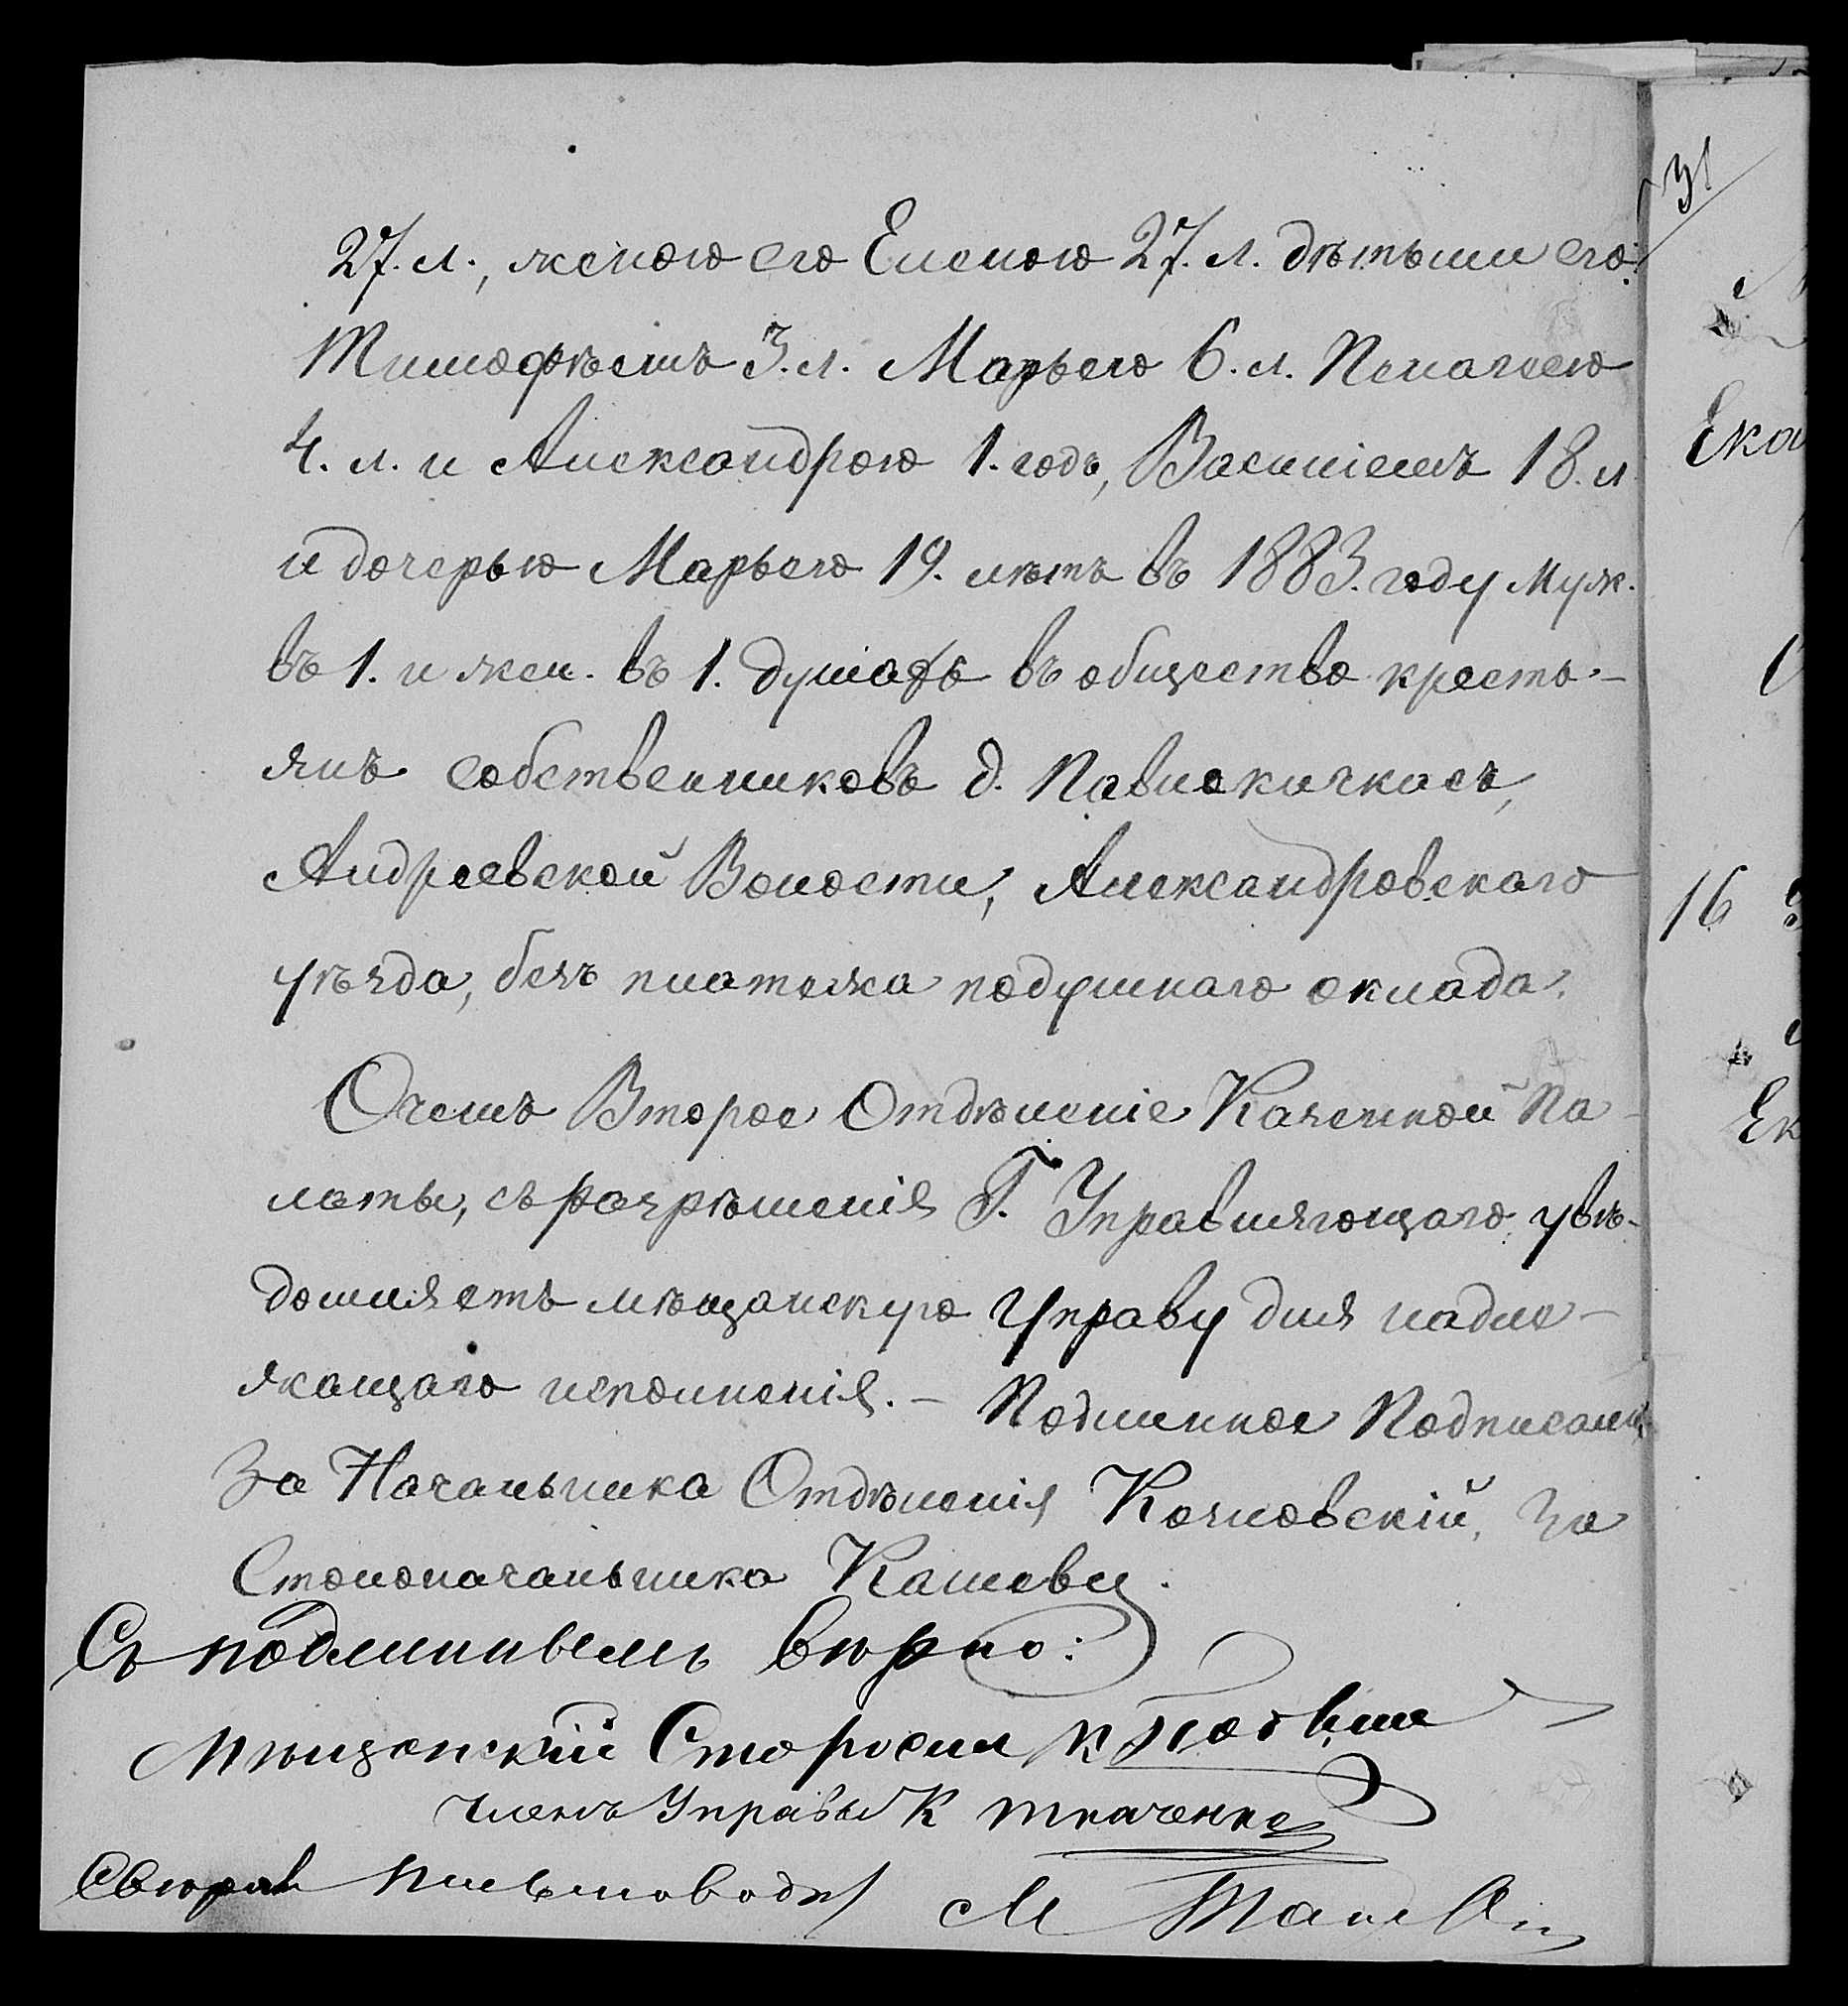 27. л., женою его Еленою 27. л. дѣтьми его:
Тимофѣемъ 3. л. Марьею 6. л. Пелагеею
4. л. и Александрою 1. годъ, Василіемъ 18. л
и дочерью Марьею 19. лѣтъ въ 1883. году муж.
въ 1. и жен. въ 1. душахъ въ общество кресть-
янъ собственниковъ д. Павлокичкасъ,
Андреевской Волости, Александровскаго
уѣзда, безъ платежа подушнаго оклада.
Очемъ Второе Отдѣленіе Казенной Па-
латы, съ разрѣшенія Г. Управляющаго, увѣ-
домляетъ мѣщанскую Управу для надле-
жащаго исполненія. — Подлинное Подписали:
За Начальника Отдѣленія Козловскій, За
Столоначальника
Съ подлиннымъ вѣрно:
Мѣщанскій Староста
Членъ Управы К Ткаченко
Свѣрялъ Письмоводит М
31
Ека
16
Ек